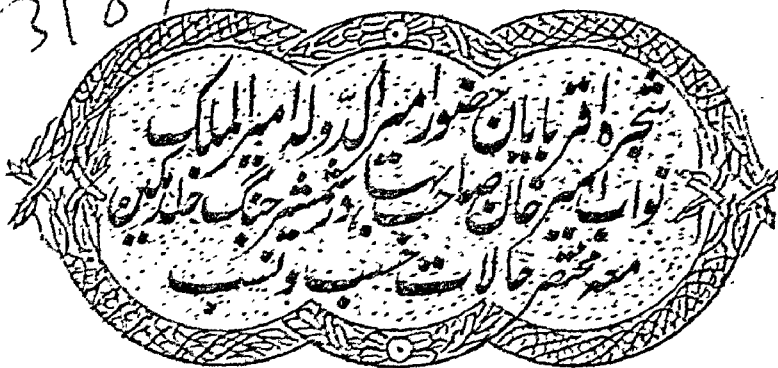 310
شجرہ اقربایان حضور امیر الدولہ امیر الملک
نواب امیر خان صاحب بہادر شمشیر جنگ خلد مکین
معہ مختصر حالات حسب و نسب